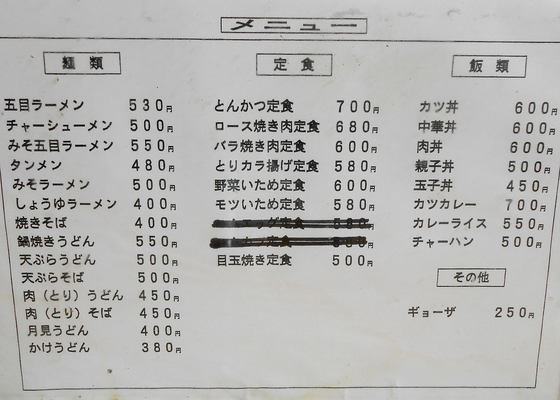 メニュー
麺類
五目ラーメン 530円
チャーシューメン 500円
みそ五目ラーメン 550円
タンメン 480円
みそラーメン 500円
しょうゆラーメン 400円
焼きそば 400円
鍋焼きうどん 550円
天ぷらうどん 500円
天ぷらそば 500円
肉（とり）うどん 450円
肉（とり）そば 450円
月見うどん 400円
かけうどん 380円
定食
とんかつ定食 700円
ロース焼き肉定食 680円
バラ焼き肉定食 600円
とりカラ揚げ定食 580円
野菜いため定食 600円
モツいため定食 580円
エッグ定食
定食
目玉焼き定食 500円
飯類
カツ丼 600円
中華丼 600円
肉丼 600円
親子丼 500円
玉子丼 450円
カツカレー 700円
カレーライス 550円
チャーハン 500円
その他
ギョーザ 250円